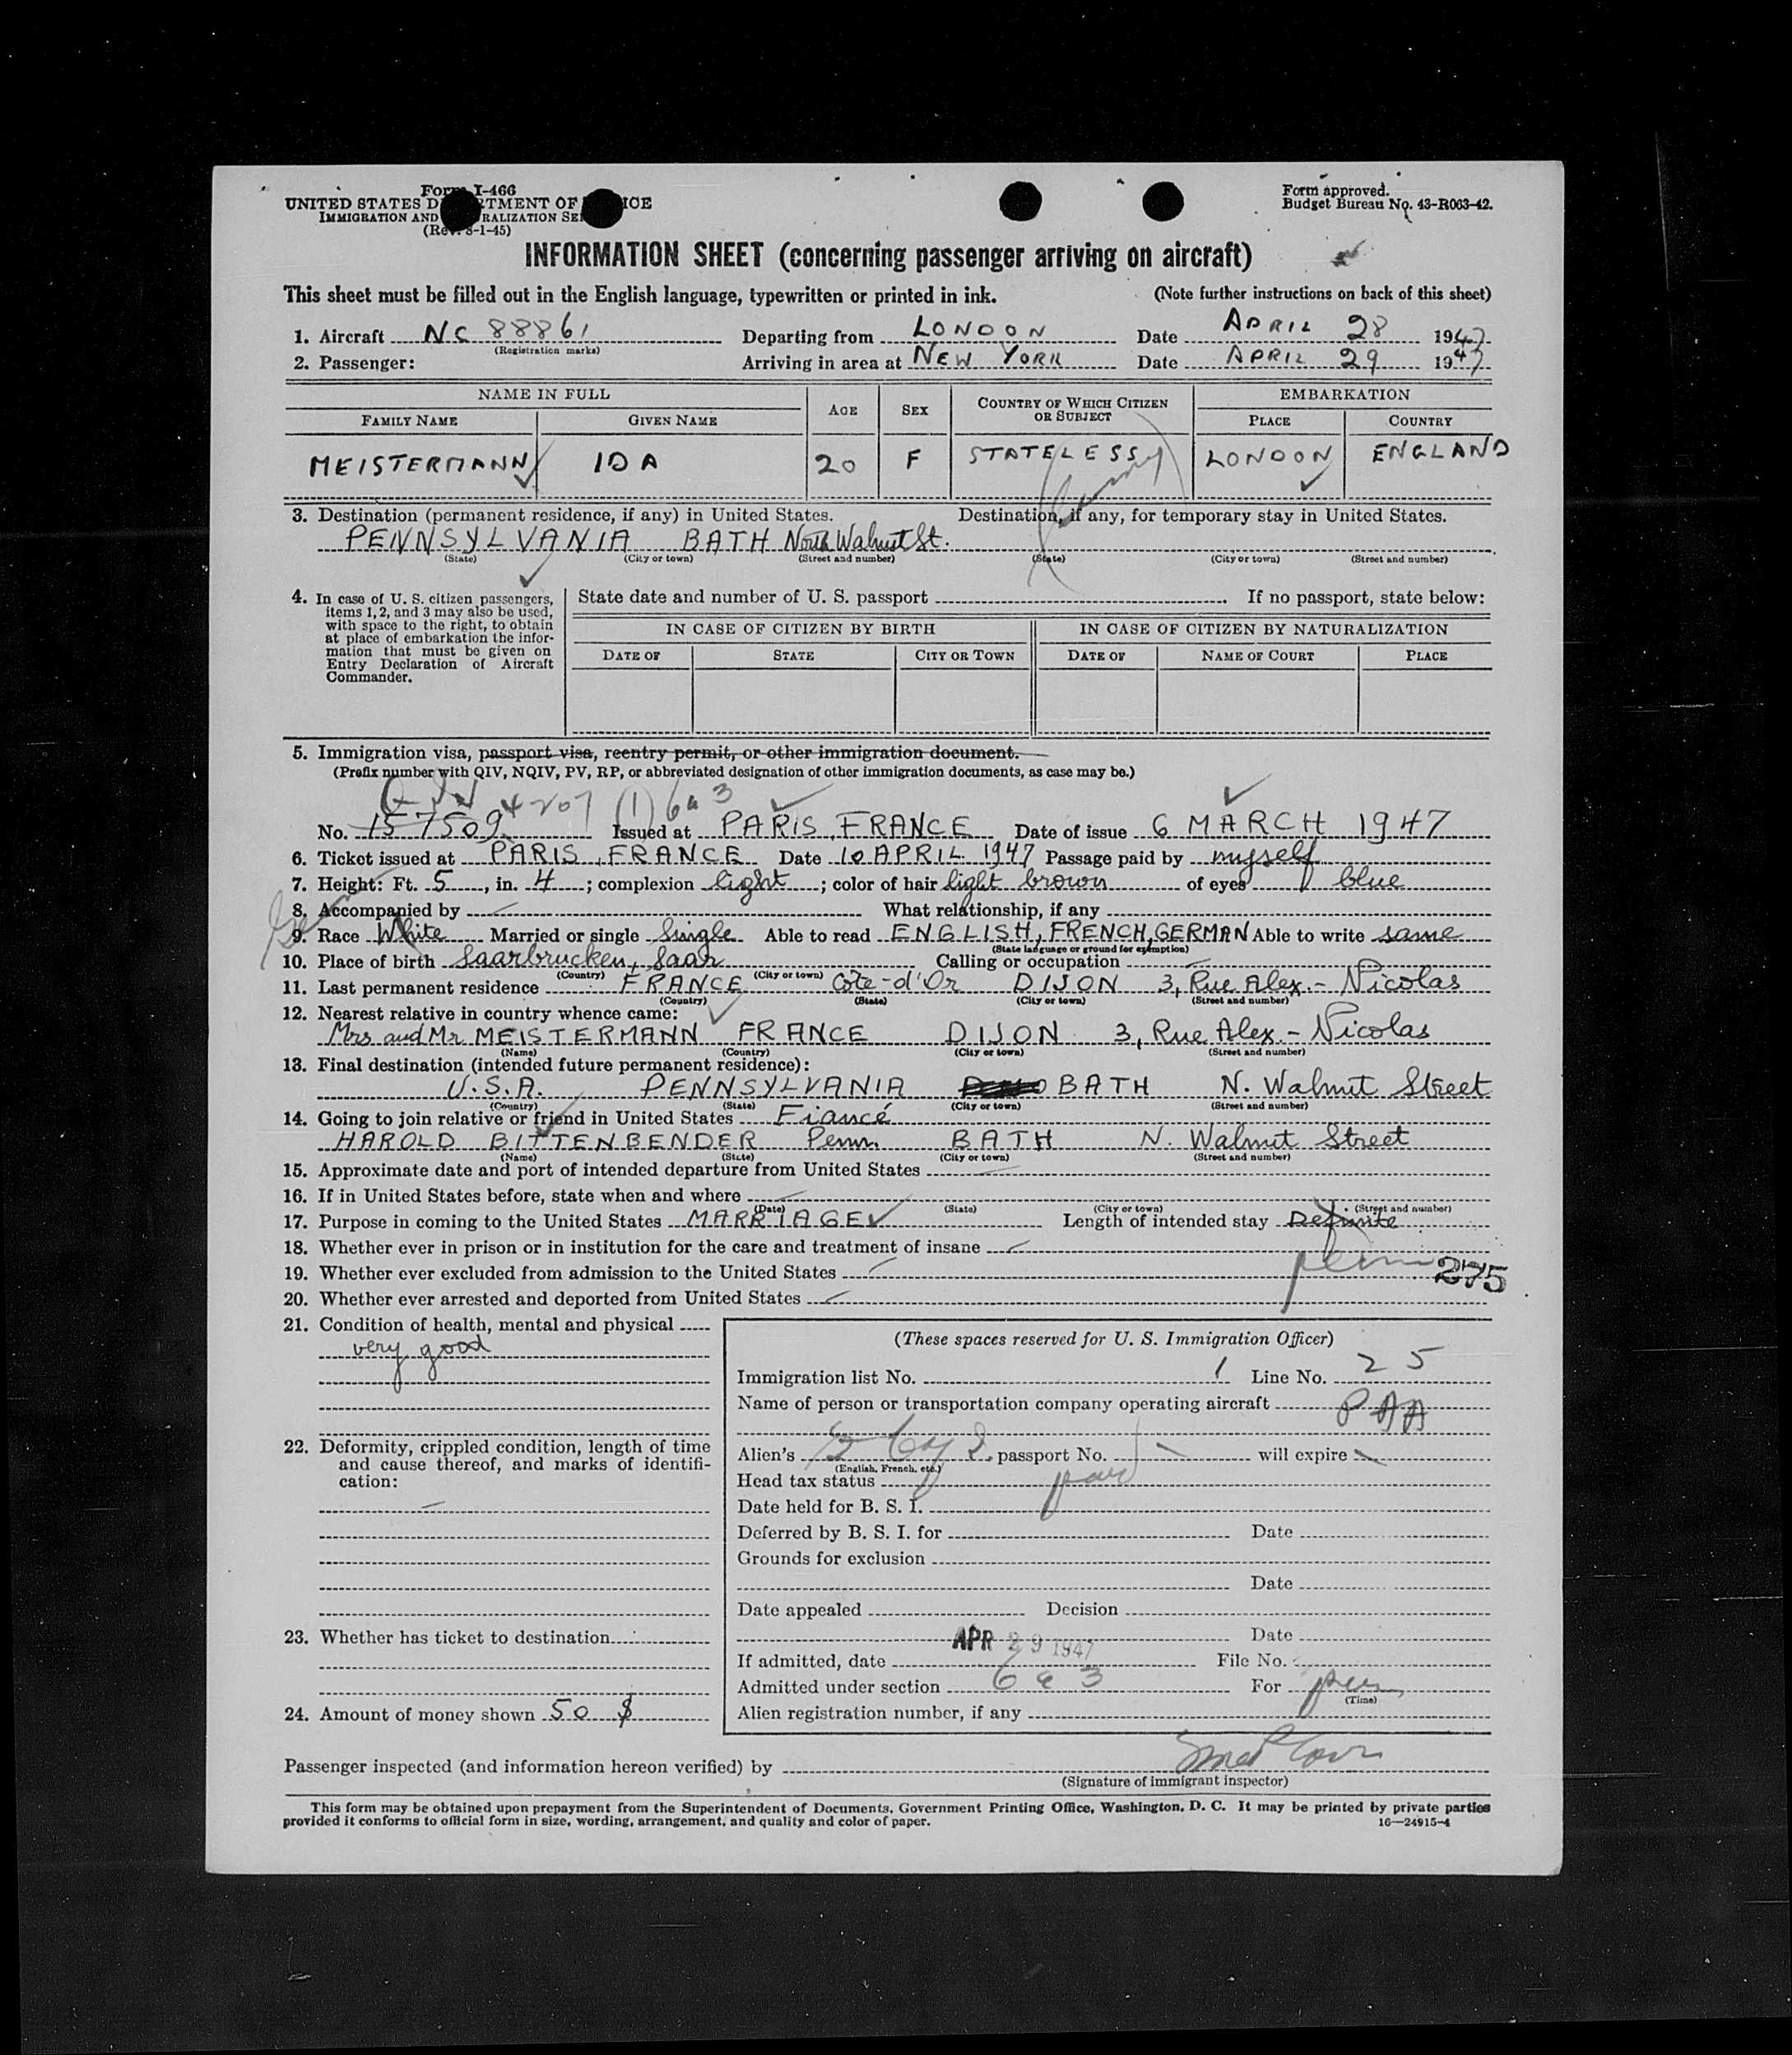 Form I-466
UNITED STATES DEPARTMENT OF JUSTICE
IMMIGRATION AND NATURALIZATION SERVICE
(Rev. 8-1-45)
Form approved.
Budget Bureau No. 43-R063-42.
INFORMATION SHEET (concerning passenger arriving on aircraft)
This sheet must be filled out in the English language, typewritten or printed in ink. (Note further instructions on back of this sheet)
1. Aircraft NC 88861 Departing from LONDON Date APRIL 28 1947
(Registration marks)
2. Passenger: Arriving in area at NEW YORK Date APRIL 29 1947
NAME IN FULL AGE SEX COUNTRY OF WHICH CITIZEN OR SUBJECT EMBARKATION
FAMILY NAME GIVEN NAME PLACE COUNTRY
MEISTERMANN IDA 20 F STATELESS LONDON ENGLAND
3. Destination (permanent residence, if any) in United States. Destination, if any, for temporary stay in United States.
PENNSYLVANIA BATH North Walnut St.
(State) (City or town) (Street and number) (State) (City or town) (Street and number)
4. In case of U. S. citizen passengers, items 1, 2, and 3 may also be used, with space to the right, to obtain at place of embarkation the information that must be given on Entry Declaration of Aircraft Commander.
State date and number of U. S. passport If no passport, state below:
IN CASE OF CITIZEN BY BIRTH IN CASE OF CITIZEN BY NATURALIZATION
DATE OF STATE CITY OR TOWN DATE OF NAME OF COURT PLACE
5. Immigration visa, passport visa, reentry permit, or other immigration document.
(Prefix number with QIV, NQIV, PV, RP, or abbreviated designation of other immigration documents, as case may be.)
4207 (1) 6a3
No. 157509 Issued at PARIS, FRANCE Date of issue 6 MARCH 1947
6. Ticket issued at PARIS, FRANCE Date 10 APRIL 1947 Passage paid by myself
7. Height: Ft. 5, in. 4; complexion light; color of hair light brown of eyes blue
8. Accompanied by What relationship, if any
9. Race White Married or single Single Able to read ENGLISH, FRENCH, GERMAN Able to write same
(State language or ground for exemption)
10. Place of birth Saarbrucken, Saar Calling or occupation
(Country) (City or town)
11. Last permanent residence FRANCE Côte-d'Or DIJON 3, Rue Alex.- Nicolas
(Country) (State) (City or town) (Street and number)
12. Nearest relative in country whence came:
Mrs and Mr MEISTERMANN FRANCE DIJON 3, Rue Alex.- Nicolas
(Name) (Country) (City or town) (Street and number)
13. Final destination (intended future permanent residence):
U.S.A. PENNSYLVANIA BATH N. Walnut Street
(Country) (State) (City or town) (Street and number)
14. Going to join relative or friend in United States Fiancé
HAROLD BITTENBENDER Penn. BATH N. Walnut Street
(Name) (State) (City or town) (Street and number)
15. Approximate date and port of intended departure from United States
16. If in United States before, state when and where
(Date) (State) (City or town) (Street and number)
17. Purpose in coming to the United States MARRIAGE Length of intended stay Definite
18. Whether ever in prison or in institution for the care and treatment of insane
perm
19. Whether ever excluded from admission to the United States
275
20. Whether ever arrested and deported from United States
21. Condition of health, mental and physical
very good
22. Deformity, crippled condition, length of time and cause thereof, and marks of identification:
23. Whether has ticket to destination
24. Amount of money shown 50 $
(These spaces reserved for U. S. Immigration Officer)
Immigration list No. 1 Line No. 25
Name of person or transportation company operating aircraft PAA
Alien's passport No. will expire
(English, French, etc.)
Head tax status paid
Date held for B. S. I.
Deferred by B. S. I. for Date
Grounds for exclusion
Date
Date appealed Decision
Date
APR 29 1947
If admitted, date File No.
Admitted under section 6a3 For perm
(Time)
Alien registration number, if any
Passenger inspected (and information hereon verified) by
(Signature of immigrant inspector)
This form may be obtained upon prepayment from the Superintendent of Documents, Government Printing Office, Washington, D. C. It may be printed by private parties
provided it conforms to official form in size, wording, arrangement, and quality and color of paper.
16—24915-4